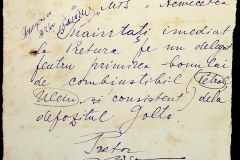 MTS "Nemecetca
Înaintați imediat
la Pretura pe un delegat
pentru primirea bonului
de combustibil (Petrol,
Uleiu, și consistent) dela
depozitul Golta.
Pretor